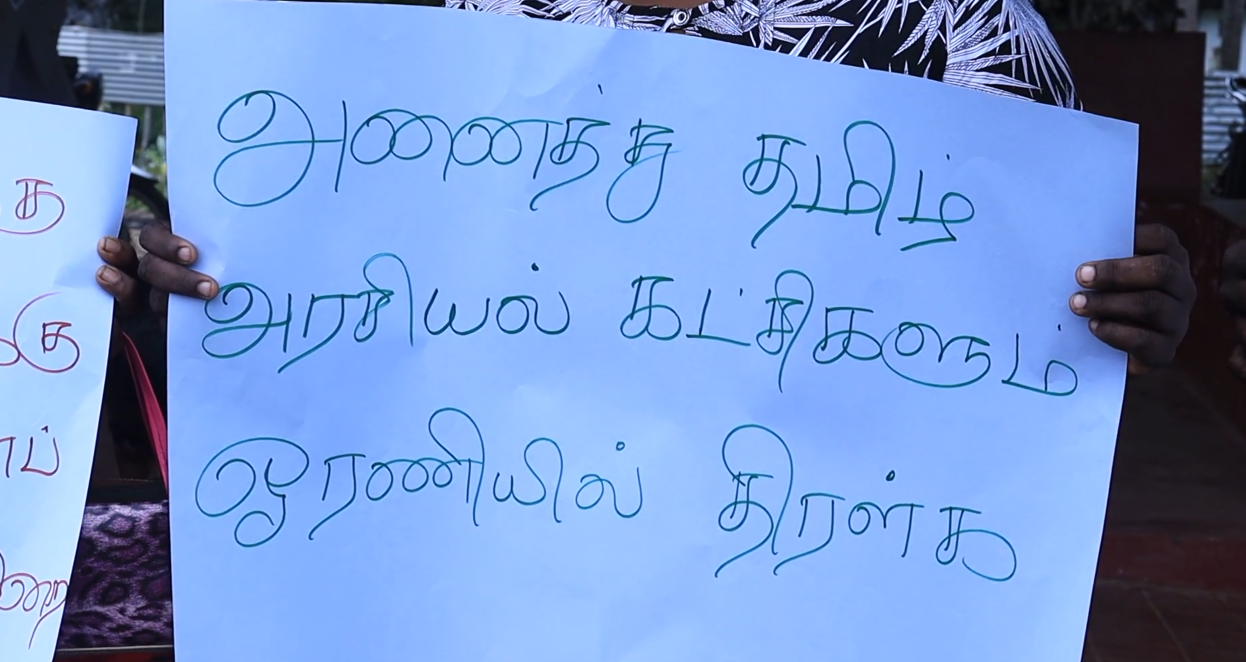 அனைத்து தமிழ்
அரசியல் கட்சிகளும்
ஓரணியில் திரள்க